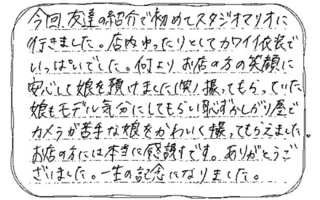 今回、友達の紹介で初めてスタジオマリオに
行きました。店内ゆったりとしてカワイイ衣装で
いっぱいでした。何よりお店の方の笑顔に
安心して娘を預けました(笑)撮ってもらっていた
娘もモデル気分にしてもらい恥ずかしがり屋で
カメラが苦手な娘をかわいく撮ってもらえました
お店の方には本当に感謝です。ありがとうご
ざいました。一生の記念になりました。